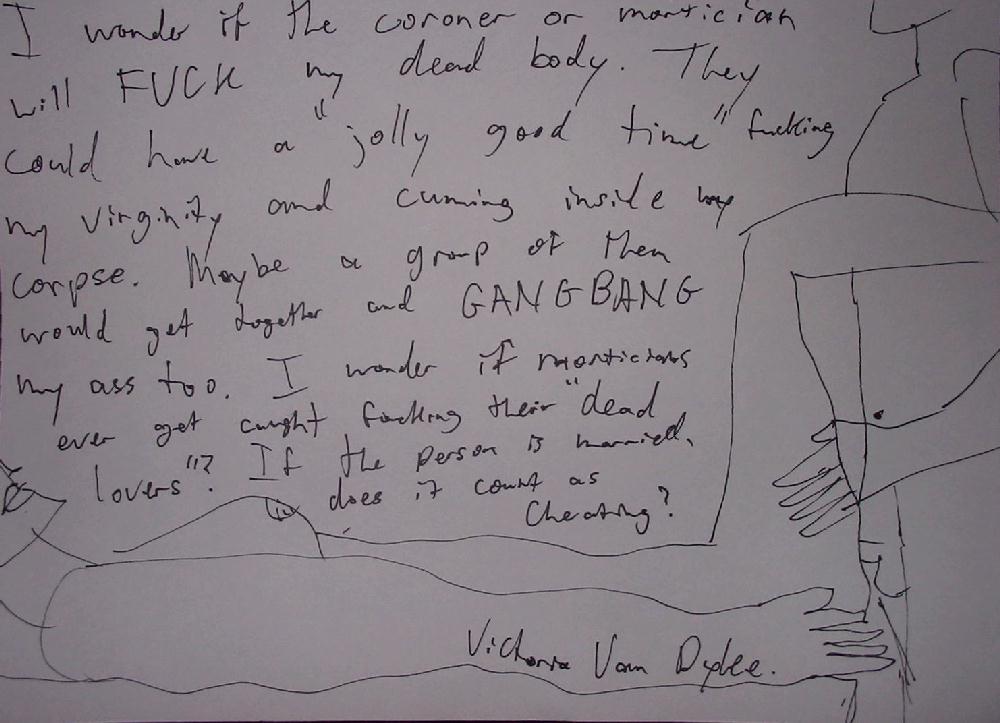 I wonder if the coroner or mortician
will FUCK my dead body. They
could have a "jolly good time" fucking
my virginity and cuming inside my
corpse. Maybe a group of them
would get together and GANGBANG
my ass too. I wonder if morticians
ever get caught fucking their "dead
lovers"? If the person is married,
does it count as
cheating?
Van